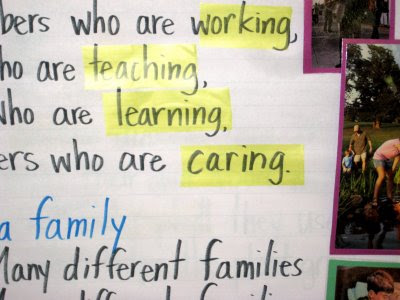 bers who are working,
ho are teaching,
who are learning,
ers who are caring.
a family
Many different families